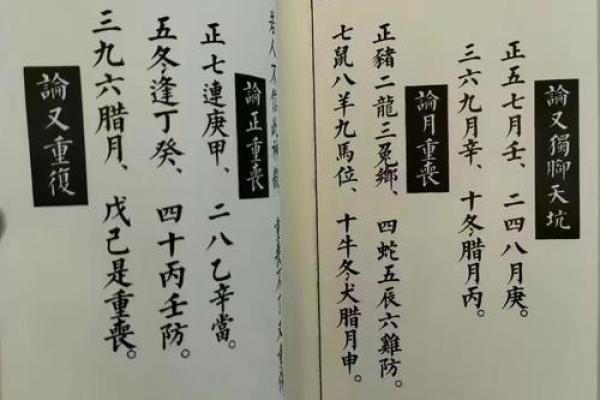 論又獨腳天坑
正五七月壬、二四八月庚。
三六九月辛、十冬腊月丙。
論月重喪
正豬二龍三兔鄉、四蛇五辰六雞防。
七鼠八羊九馬位、十牛冬犬腊月申。
若人不信此神
論正重喪
正七連庚甲、二八乙辛當。
五冬逢丁癸、四十丙壬防。
三九六腊月、戊己是重喪。
論又重復